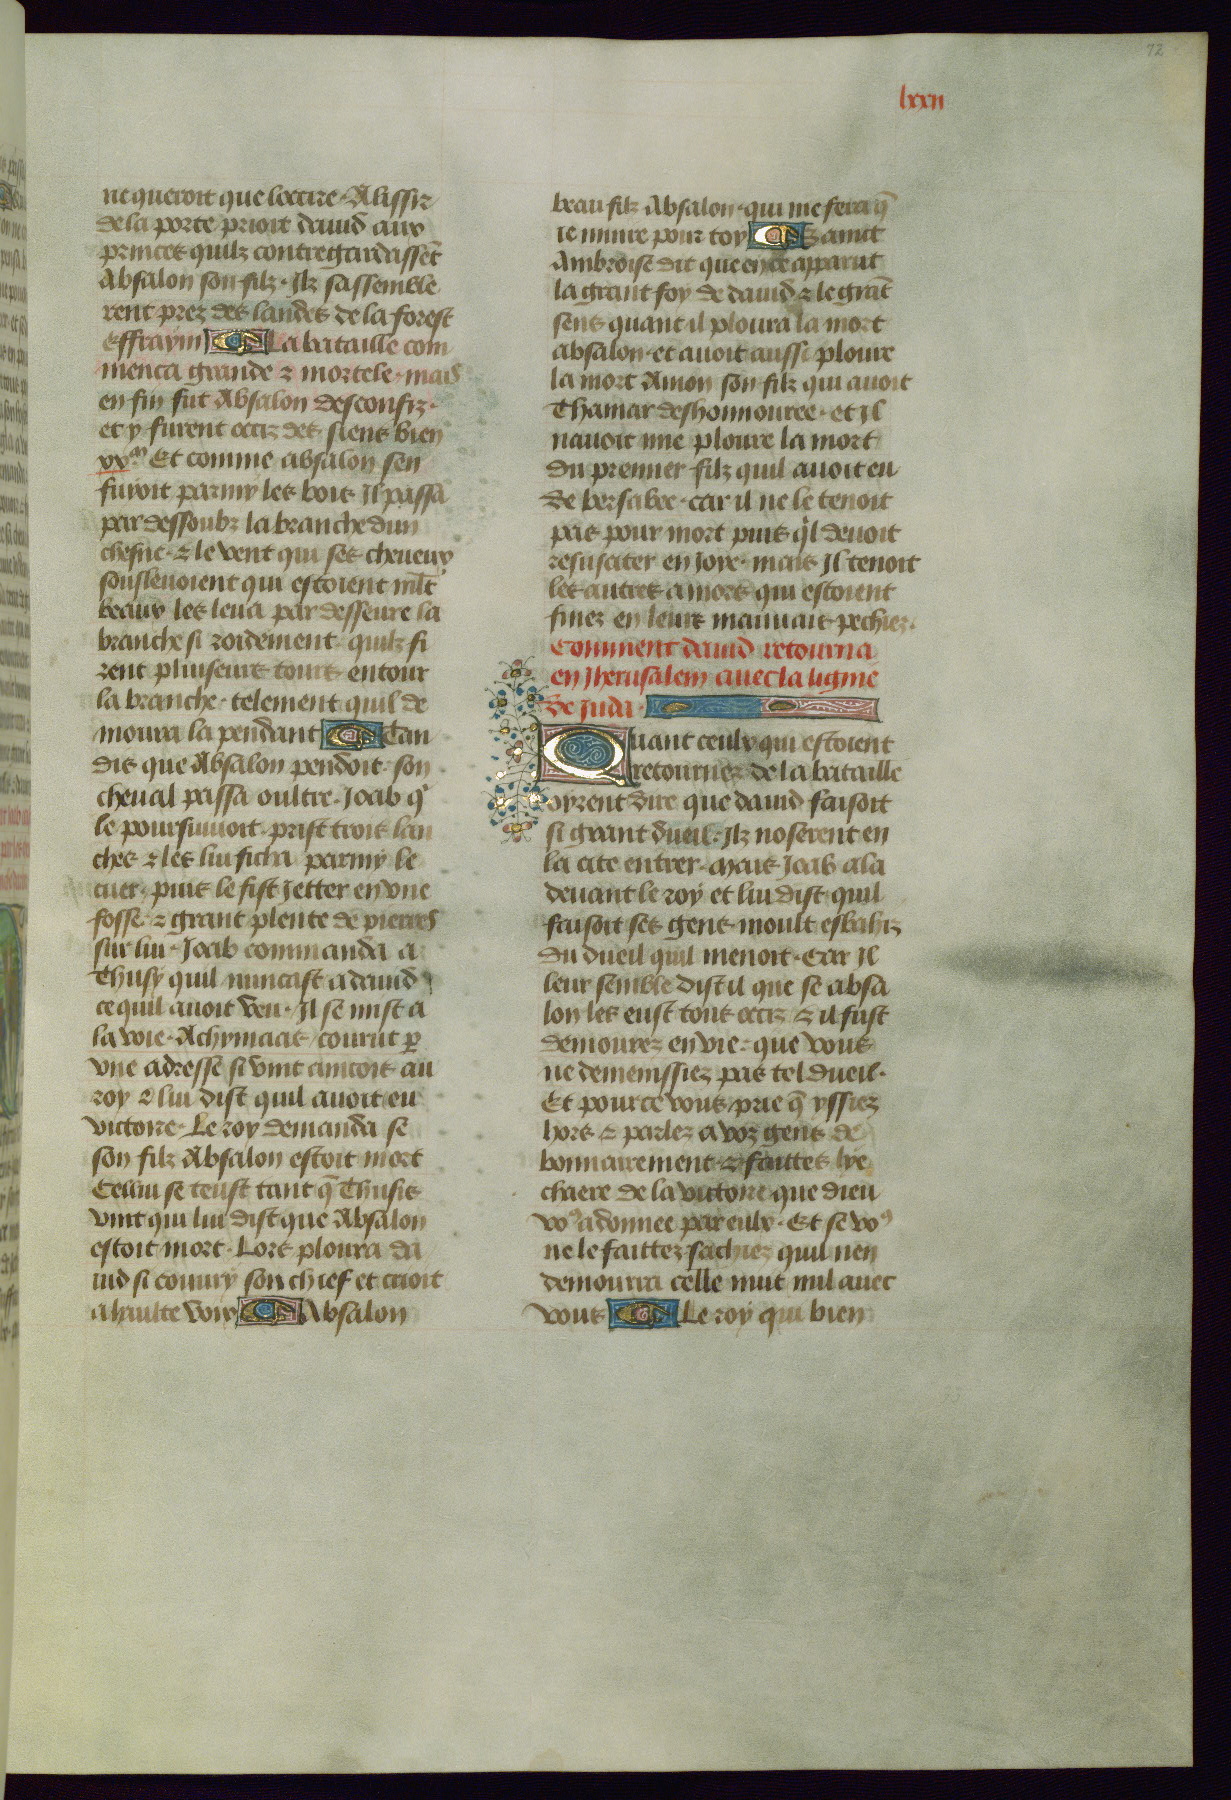 72
lxxii
ne queroit que loccire. A lissir
de la porte prioit dauid aux
princes quilz contregardassēt
Absalon son filz. Ilz sassemble
rent prez des landes de la forest
effraym La bataille com
menca grande ⁊ mortele. mais
en fin fut Absalon desconfiz.
et y furent occiz des siens bien
xxᵐ Et comme absalon sen
fuyoit parmy les bois il passa
par dessoubz la branche dun
chesne. ⁊ le vent qui ses cheueux
souslenoient qui estoient mlt
beaux les leua par desseure la
branche si roidement. quilz fi
rent pluiseurs tours entour
la branche. telement quil de
moura la pendant Tan
dis que Absalon pendoit. son
cheual passa oultre. Joab qͥ
le poursuiuoit. prist trois lan
ches ⁊ les lui ficha parmy le
cuer. puis le fist Jetter en vne
fosse. ⁊ grant plente de pierres
sur lui. Joab commanda a
Thusy quil nuncast a dauid
ce quil auoit veu. Il se mist a
la voie. Achymaas courut ꝑ
vne adresse si vint aincois au
roy ⁊ lui dist quil auoit eu
victoire. Le roy demanda se
son filz Absalon estoit mort
Cellui se teust tant q̄ Thusis
vint qui lui dist que Absalon
estoit mort. Lors ploura da
uid si couury son chief et crioit
a haulte voix Absalon
beau filz Absalon. qui me fera q̄
ie muire pour toy Sainct
Ambroise dit que en ce apparut
la grant foy de dauid ⁊ le grāt
sens quant il ploura la mort
absalon. et auoit aussi ploure
la mort Amon son filz qui auoit
Thamar deshonnouree. et il
nauoit mie ploure la mort
du premier filz quil auoit eu
de bersabee. car il ne le tenoit
pas pour mort puis qͥl deuoit
resusciter en Joye. mais Il tenoit
les autres a mors qui estoient
finez en leurs mauuais pechiez.
Comment dauid retourna
en Jherusalem auec la lignie
de Juda.
Quant ceulx qui estoient
retournez de la bataille
oyrent dire que dauid faisoit
si grant dueil. Ilz noserent en
la cite entrer. Mais Joab ala
deuant le roy et lui dist quil
faisoit ses gens moult esbahiz
du dueil quil menoit. Car Il
leur semble dist il que se absa
lon les eust tous occiz ⁊ il fust
demourez en vie. que vous
ne demenissiez pas tel dueil.
Et pource vous prie q̄ yssiez
hors ⁊ parlez a voz gens de
bonnairement. ⁊ faittes lye
chaere de la victoire que dieu
voꝰ a donnee par eulx. Et se voꝰ
ne le faittez sachiez quil nen
demourra celle nuit nul auec
vous Le roy qui bien